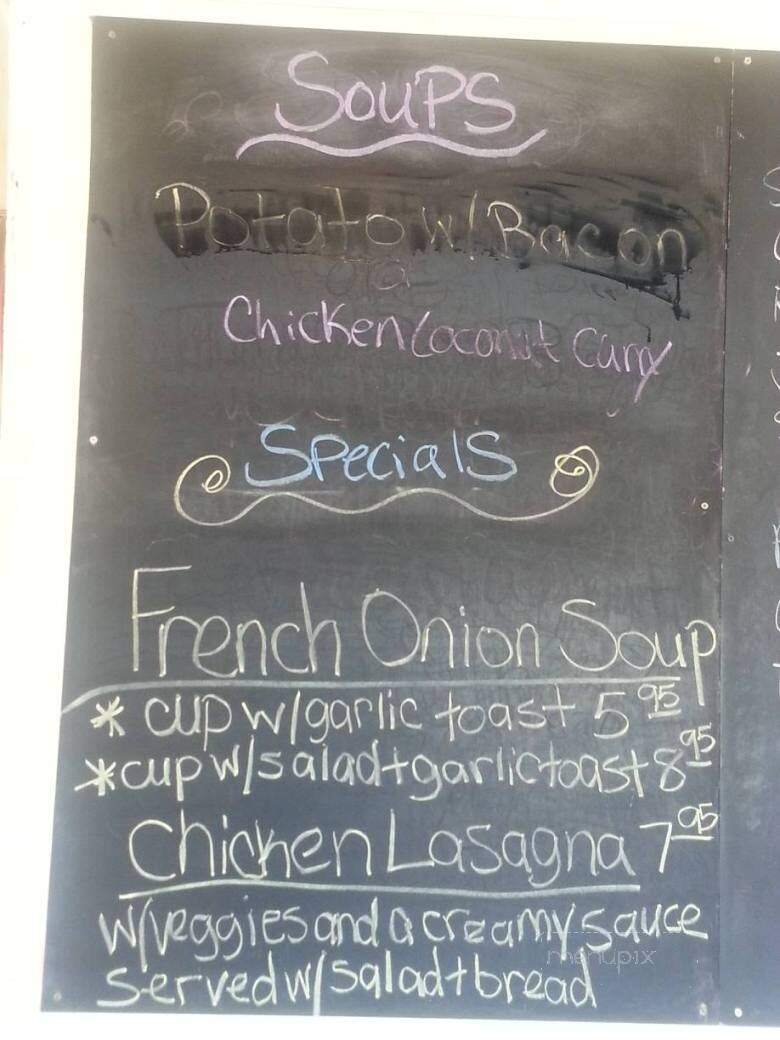 SOUPS
Potato w/ Bacon
Chicken Coconut Curry
Specials
French Onion Soup
* cup w/garlic toast 5 95
* cup w/salad + garlic toast 8 95
Chicken Lasagna 7 95
w/veggies and a creamy sauce
served w/ salad + bread
menupix